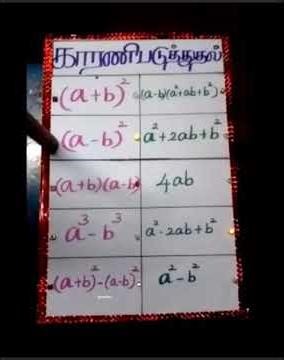 காரணிபடுத்துதல்
(a+b)² (a-b)(a²+ab+b²)
(a-b)² a²+2ab+b²
(a+b)(a-b) 4ab
a³-b³ a²-2ab+b²
(a+b)²-(a-b)² a²-b²